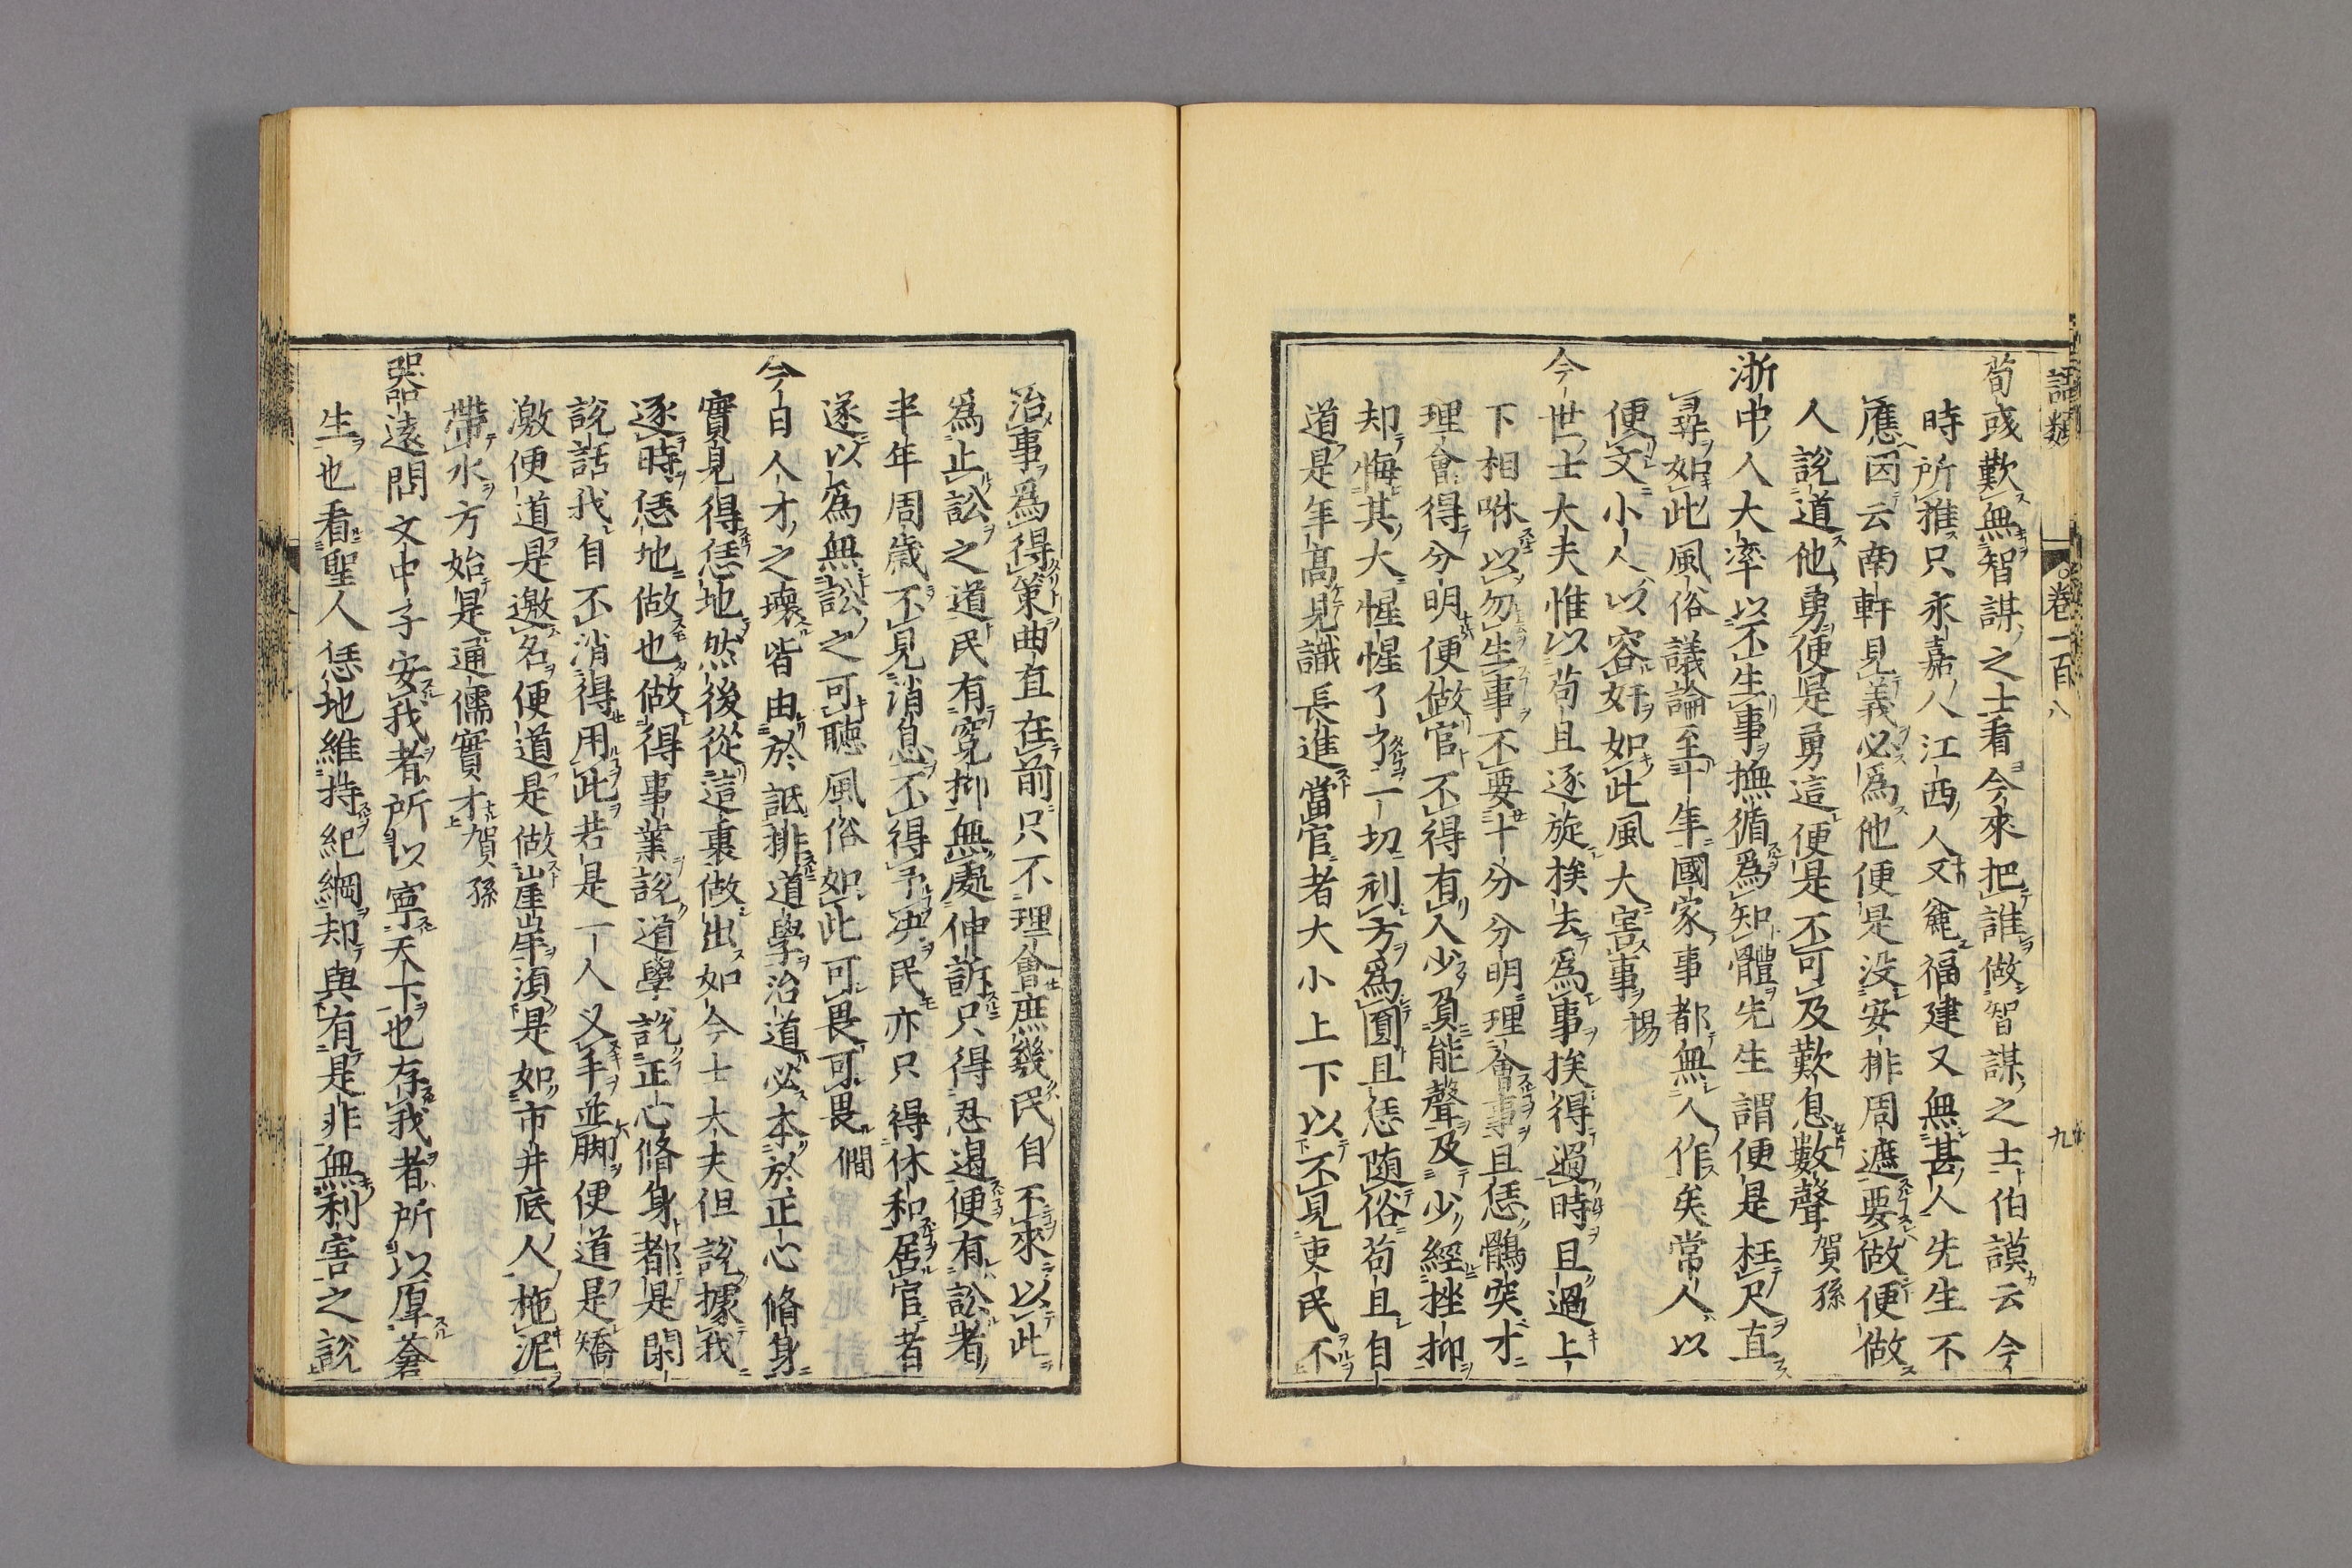 語類 卷一百八 九
荀彧歎無智謀之士看今來把誰做智謀之士伯謨云今
時所推只永嘉人江西人又麄福建又無甚人先生不
應因云南軒見義必為他便是沒安排周遮要做便做
人說道他勇便是勇這便是不可及歎息數聲 賀孫
浙中人大率以不生事撫循為知體先生謂便是枉尺直
尋如此風俗議論至十年國家事都無人作矣常人以
便文小人以容奸如此風大害事 揚
今世士大夫惟以苟且逐旋挨去為事挨得過時且過上
下相咻以勿生事不要十分分明理會事且恁鶻突才
理會得分明便做官不得有人少負能聲及少經挫抑
却悔其大惺惺了了一切刓方為圓且恁随俗苟且自
道是年高見識長進當官者大小上下以不見吏民不
治事為得策曲直在前只不理會庶幾民自不來以此
為止訟之道民有冤抑無處伸訴只得忍遏便有訟者
半年周歲不見消息不得予决民亦只得休和居官者
遂以為無訟之可聽風俗如此可畏可畏 僩
今日人才之壞皆由於詆排道學治道必本於正心脩身
實見得恁地然後從這裏做出如今士大夫但說據我
逐時恁地做也做得事業說道學說正心脩身都是閑
說話我自不消得用此若是一人叉手並脚便道是矯
激便道是邀名便道是做崖岸湏是如市井底人拖泥
帶水方始是通儒實才 賀孫
器遠問文中子安我者所以寧天下也存我者所以厚蒼
生也看聖人恁地維持紀綱却與有是非無利害之說